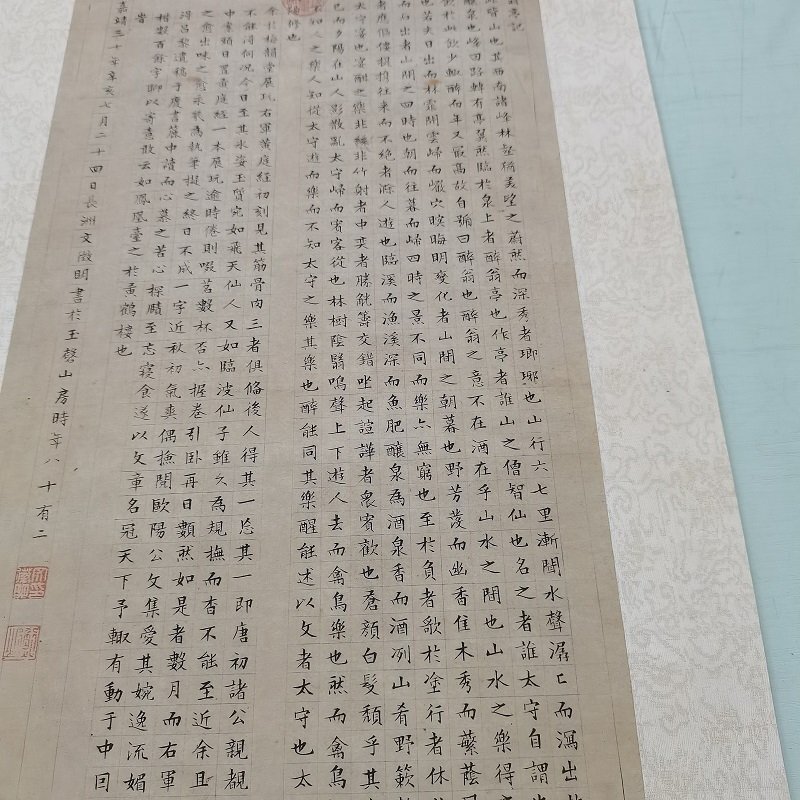 記
皆山也其西南諸峰林壑猶美望之蔚然而深秀者瑯琊也山行六七里漸聞水聲潺〻而瀉出
釀泉也峰回路轉有亭翼然臨於泉上者醉翁亭也作亭者誰山之僧智仙也名之者誰太守自謂
飲於此飲少輒醉而年又最高故自號曰醉翁也醉翁之意不在酒在乎山水之間也山水之樂得
也若夫日出而林霏開雲歸而巖穴暝晦明變化者山間之朝暮也野芳發而幽香佳木秀而蘩蔭
而石出者山間之四時也朝而往暮而歸四時之景不同而樂亦無窮也至於負者歌於塗行者休
者應傴僂提攜往來而不絕者滁人遊也臨溪而漁溪深而魚肥釀泉為酒泉香而酒冽山肴野蔌
太守宴也宴酣之樂非絲非竹射者中奕者勝觥籌交錯坐起諠譁者衆賓歡也蒼顏白髮頹乎其
已而夕陽在山人影散亂太守歸而賓客從也林樹陰翳鳴聲上下遊人去而禽鳥樂也然而禽鳥
不知人之樂人知從太守遊而樂而不知太守之樂其樂也醉能同其樂醒能述以文者太守也太
脩也
余於梅韻堂展玩右軍黃庭經初刻見其筋骨肉三者俱備後人得其一忘其一即唐初諸公親覩
不能得何況今日至其冰姿玉質宛如飛天仙人又如臨波仙子雖久為規撫而杳不能至近余且
中齋頭日置黃庭經一本展玩逾時倦則啜茗數杯否亦握卷引臥再日數然如是者數月而右軍
之愈出味之愈永執筆擬之終日不成一字近秋初氣爽偶撿閱歐陽公文集愛其婉逸流媚
得昌黎遺稿于廢書簏中讀而心慕之苦心探賾至忘寢食遂以文章名冠天下予輒有動于中因
楷數百餘字聊以寄意敢云如鳳凰臺之於黃鶴樓也
嘉靖三十年辛亥七月二十四日長洲文徵明書於玉磬山房時年八十有二